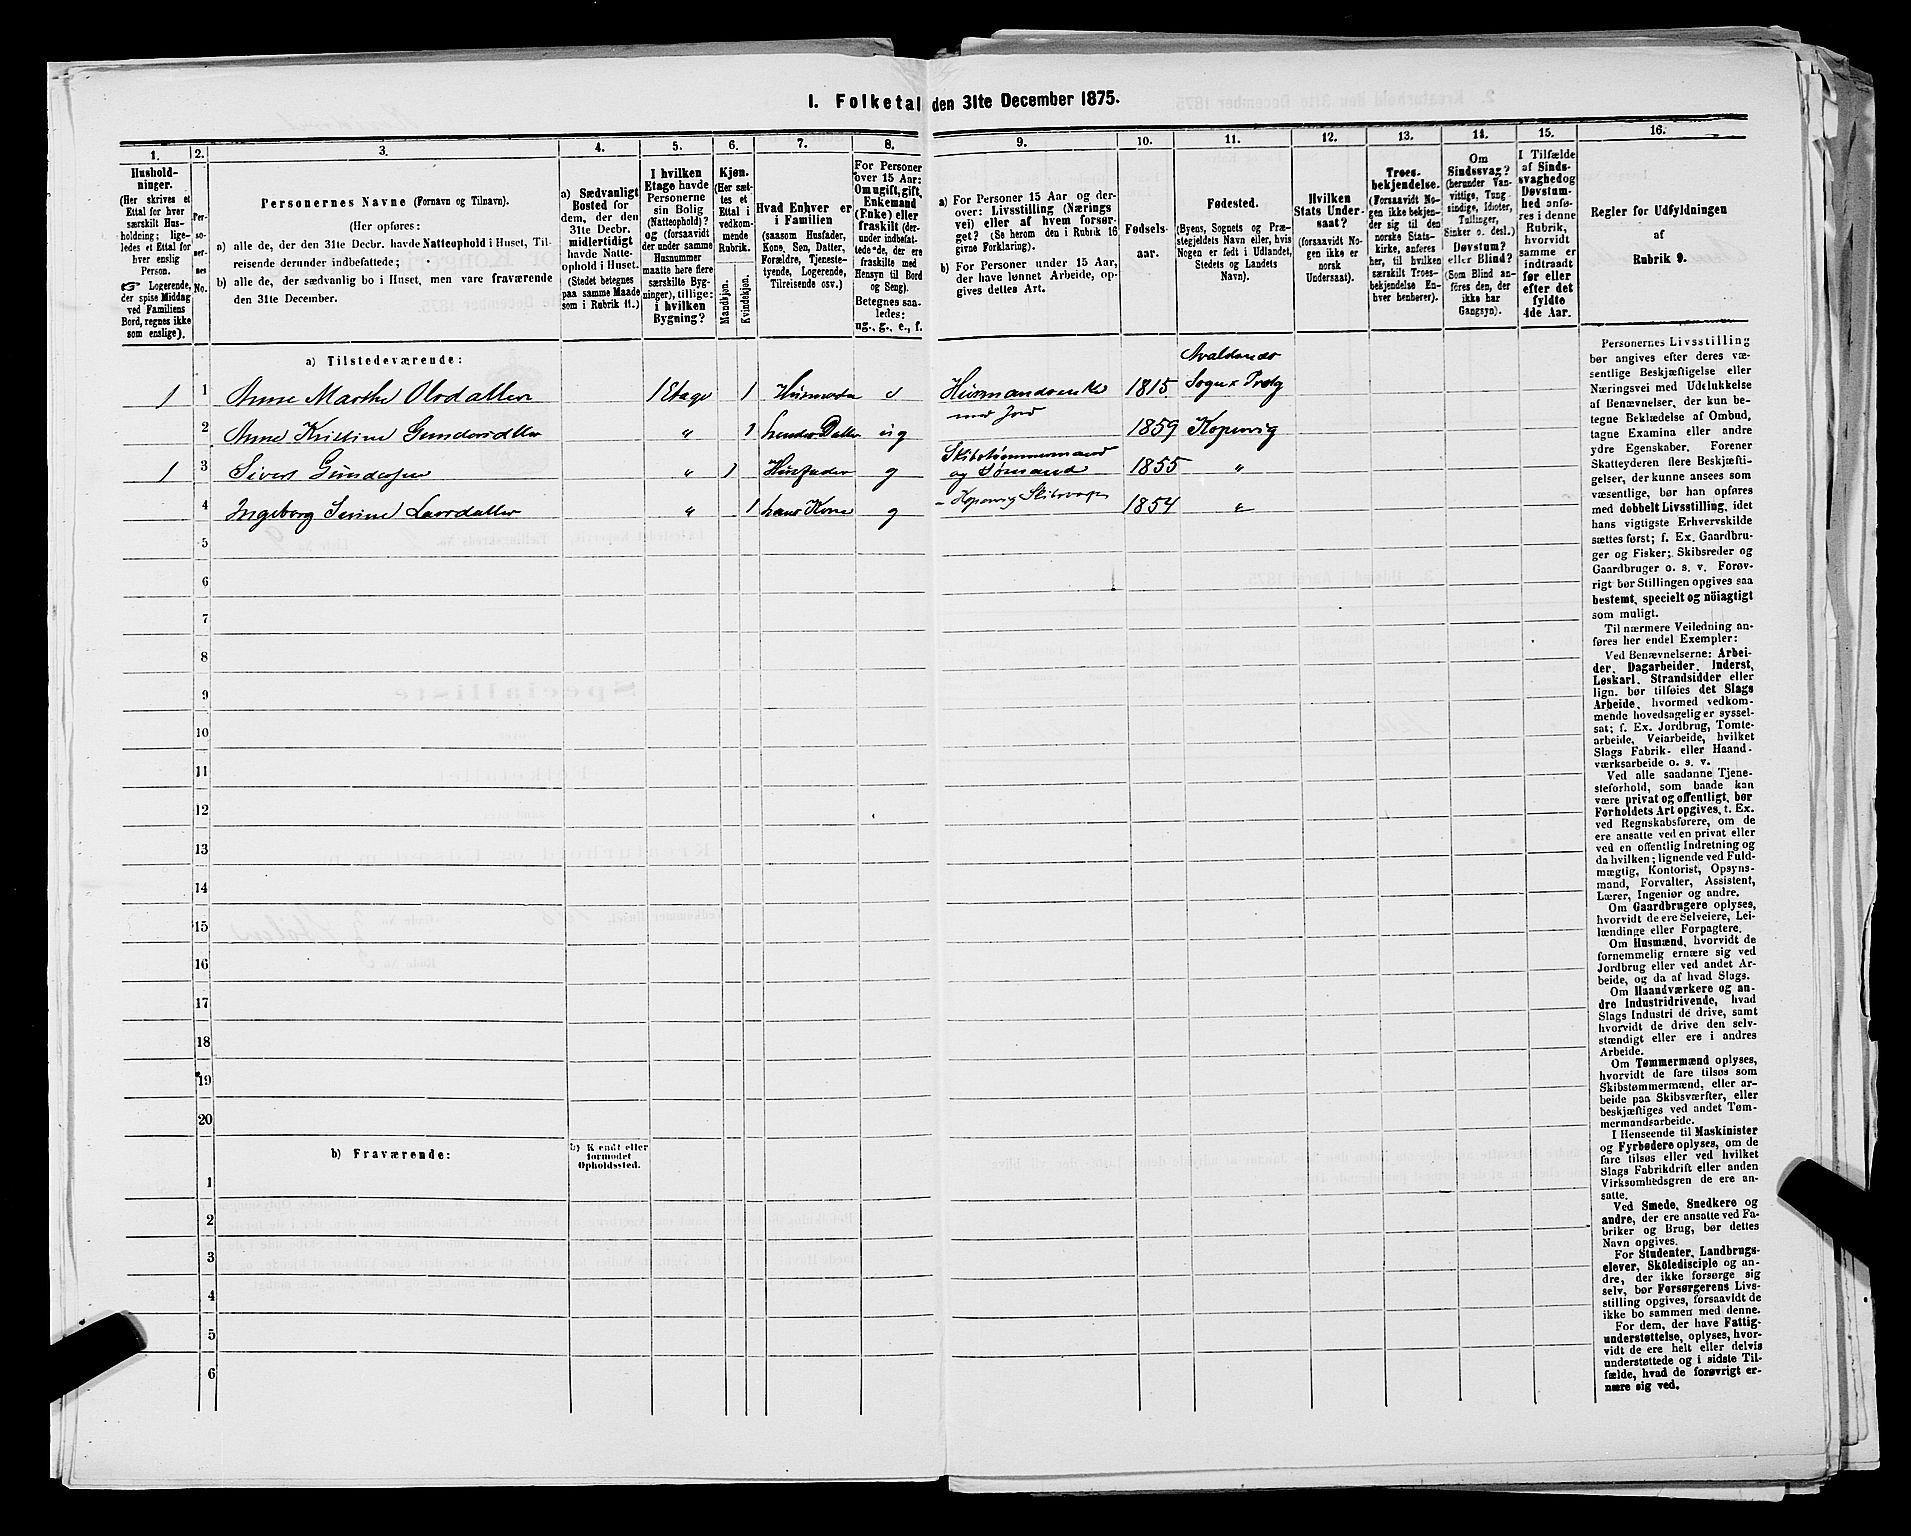 I. Folketal den 31te December 1875.
1. 2. 3. 4. 5. 6. 7. 8. 9. 10. 11. 12. 13. 14. 15. 16.
Hushold-
ninger.
(Her skrives et
Ettal for hver
særskilt Hus-
holdning; lige-
ledes et Ettal for
hver enslig
Person.
Logerende,
der spise Middag
ved Familiens
Bord, regnes ikke
som enslige).
Per-
so-
ner-
nes
No.
Personernes Navne (Fornavn og Tilnavn).
(Her opføres:
a) alle de, der den 31te Decbr. havde Natteophold i Huset, Til-
reisende derunder indbefattede;
b) alle de, der sædvanlig bo i Huset, men vare fraværende
den 31te December.
a) Sædvanligt
Bosted for
dem, der den
31te Decbr.
midlertidigt
havde Natte-
ophold i Huset.
(Stedet betegnes
paa samme Maade
som i Rubrik 11.)
I hvilken
Etage havde
Personerne
sin Bolig
(Natteophold)?
og (forsaavidt
der under samme
Husnummer
maatte høre flere
særskilte Byg-
ninger), tillige:
i hvilken
Bygning?
Kjøn.
(Her sæt-
tes et
Ettal i
vedkom-
mende
Rubrik.
Mandkjøn.
Kvindekjøn.
Hvad Enhver er
i Familien
(saasom Husfader,
Kone, Søn, Datter,
Forældre, Tjeneste-
tyende, Logerende,
Tilreisende osv.)
For Personer
over 15 Aar:
Om ugift, gift,
Enkemand
(Enke) eller
fraskilt (der-
under indbefat-
tede de, der ere
fraskilte med
Hensyn til Bord
og Seng).
Betegnes saa-
ledes:
ug., g., e., f.
a) For Personer 15 Aar og der-
over: Livsstilling (Nærings
vei) eller af hvem forsør-
get? (Se herom den i Rubrik 16
givne Forklaring).
b) For Personer under 15 Aar,
der have lønnet Arbeide, op-
gives dettes Art.
Fødsels-
aar.
Fødested.
(Byens, Sognets og Præ-
stegjeldets Navn eller, hvis
Nogen er født i Udlandet,
Stedets og Landets
Navn).
Hvilken
Stats Under-
saat?
(forsaavidt No-
gen ikke er
norsk
Undersaat).
Troes-
bekjendelse.
(Forsaavidt No-
gen ikke bekjen-
der sig til den
norske Stats-
kirke, anføres
her, til hvilken
særskilt Troes-
bekjendelse En-
hver henhører).
Om
Sindssvag?
(herunder Van-
vittige, Tung-
sindige, Idioter,
Tullinger,
Sinker o. desl.)
Døvstum?
eller Blind?
(Som Blind an-
føres den, der
ikke har
Gangsyn).
I Tilfælde
af Sinds-
svaghed og
Døvstum-
hed anfø-
res i denne
Rubrik,
hvorvidt
samme er
indtraadt
før eller
efter det
fyldte
4de Aar.
Regler for Udfyldningen
af
Rubrik 9.
a) Tilstedeværende:
Avaldsnæs
1 1 Anne Marthe Olsdatter 1 Etage 1 Husmoder e Husmandsenke 1815 Sogn & Prstg
med Jord
2 Anne Kristine Gundersdtter " 1 hendes Datter ug 1859 Kopervig
Skibstømmermand
1 3 Sivert Gundersen " 1 Husfader g og Sømand 1855 "
4 Ingeborg Serine Larsdatter " 1 hans Kone g 1854 "
5
6
7
8
9
10
11
12
13
14
15
16
17
18
19
20
b) Fraværende:
b) Kjendt eller
formodet
Opholdssted.
1
2
3
4
5
6
Personernes Livsstilling
bør angives efter deres væ-
sentlige Beskjæftigelse eller
Næringsvei med Udelukkelse
af Benævnelser, der kun be-
tegne Beklædelse af Ombud,
tagne Examina eller andre
ydre Egenskaber. Forener
Skatteyderen flere Beskjæfti-
gelser, der kunne ansees som
væsentlige, bør han opføres
med dobbelt Livsstilling, idet
hans vigtigste Erhvervskilde
sættes først; f. Ex. Gaardbru-
ger og Fisker; Skibsreder og
Gaardbruger o. s. v. Forøv-
rigt bør Stillingen opgives saa
bestemt, specielt og nöiagtigt
som muligt.
Til nærmere Veiledning an-
føres her endel Exempler:
Ved Benævnelserne: Arbei-
der, Dagarbeider, Inderst,
Løskarl, Strandsidder eller
lign. bør tilføies det Slags
Arbeide, hvormed vedkom-
mende hovedsagelig er syssel-
sat; f. Ex. Jordbrug, Tomte-
arbeide, Veiarbeide, hvilket
Slags Fabrik- eller Haand-
værksarbeide o. s. v.
Ved alle saadanne Tjene-
steforhold, som baade kan
være privat og offentligt, bør
Forholdets Art opgives, t. Ex.
ved Regnskabsførere, om de
ere ansatte ved en privat eller
ved en offentlig Indretning og
da hvilken; lignende ved Fuld-
mægtig, Kontorist, Opsyns-
mand, Forvalter, Assistent,
Lærer, Ingeniør og andre.
Om Gaardbrugere oplyses,
hvorvidt de ere Selveiere, Lei-
lændinge eller Forpagtere.
Om Husmænd, hvorvidt de
fornemmelig ernære sig ved
Jordbrug eller ved andet Ar-
beide, og da af hvad Slags.
Om Haandværkere og an-
dre Industridrivende, hvad
Slags Industri de drive, samt
hvorvidt de drive den selv-
stændigt eller ere i andres
Arbeide.
Om Tømmermænd oplyses,
hvorvidt de fare tilsøs som
Skibstømmermænd, eller ar-
beide paa Skibsværfter, eller
beskjæftiges ved andet Tøm-
mermandsarbeide.
I Henseende til Maskinister
og Fyrbødere oplyses, om de
fare tilsøs eller ved hvilket
Slags Fabrikdrift eller anden
Virksomhedsgren de ere an-
satte.
Ved Smede, Snedkere og
andre, der ere ansatte ved Fa-
briker og Brug, bør dettes
Navn opgives.
For Studenter, Landbrugs-
elever, Skoledisciple og an-
dre, der ikke forsørge sig
selv, bør Forsørgerens Livs-
stilling opgives, forsaavidt de
ikke bo sammen med denne.
For dem, der have Fattig-
understøttelse, oplyses, hvor-
vidt de ere helt eller delvis
understøttede og i sidste Til-
fælde, hvad de forøvrigt er-
nære sig ved.